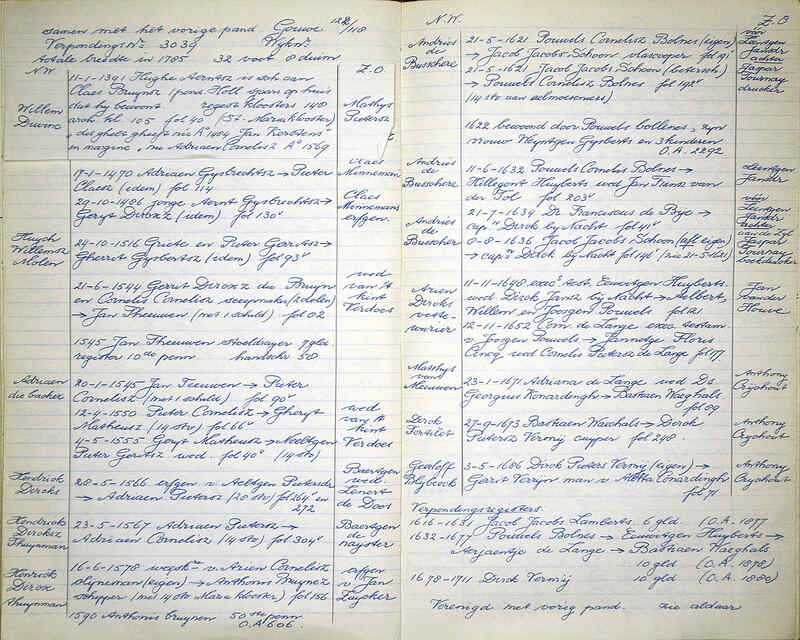 samen met het vorige pand Gouwe 122/118
Verpondings No 3039 Wijk No
totale breedte in 1785 32 voet 8 duim
N.W. Z.O.
11-1-1391 Hughe Aerntsz is sch aen
Claes Bruynsz
dat hij bewoont. regest kloosters 148
Willem Duvine
arch. kl. 105 fol 40 (St. Maria klooster)
Mathys Pietersz
Jan Kerstens
in margine, nu Adriaen Cornelisz Ao 1569
17-1-1470 Adriaen Gysbrechtsz → Pieter
Claesz (idem) fol 114
Claes Minneman
29-10-1486 jonge Aernt Gysbrechtsz →
Geryt Dircxz (idem) fol 130v
Claes Minnemans erfgen.
Huych Willemsz Molen
24-10-1516 Griete en Pieter Gerritsz →
Gherret Gysbertsz (idem) fol 93v
21-6-1544 Gerrit Dircxz die Bruyn
en Cornelis Cornelisz steenmaker (2 delen)
→ Jan Theeuwen (met 1 schuld) fol 82
wed van 't Hint Verdoes
1545 Jan Theeuwen stoeldrayer 7 gld.
register 10de penn handschr 58
Adriaen die backer
20-1-1545 Jan Teeuwen → Pieter
Cornelisz (met 1 schuld) fol 90v
12-4-1550 Pieter Cornelisz → Gheryt
Matheusz (14 stv) fol 66v
wed van 't Hint Verdoes
4-5-1555 Geryt Matheusz → Neeltgen
Pieter Gerritsz wed. fol 40v (14 stv)
Hendrick Dircks
28-5-1566 erfgen v. Aeltgen Pietersdr
→ Adriaen Pietersz (20 stv) fol 264v en
272
Baertgen wed. Lenert de Doos
Hendrick Dircksz Thuynman
23-5-1567 Adriaen Pietersz →
Adriaen Cornelisz (14 stv) fol 304v
Baertgen de nayster
Henrick Dircx thuynman
16-6-1578 v. Arien Cornelisz
slyneman (eigen) → Anthonis Bruynez
schipper (met 14 stv Maria klooster) fol 156
erfgen v. Jan Zuycker
1590 Anthonis bruynen 50ste penn
O.A 606.
N.W. Z.O.
Andries de Busschere
21-5-1621 Pouwels Cornelisz Bolnes (eigen)
→ Jacob Jacobs Schoon vlascooper fol 191v
21-5-1621 Jacob Jacobs Schoon
→ Pouwels Cornelisz Bolnes fol 192v
(14 stv van aelmoeseniers)
vóór Leentgen Jansdr achter Jaspar Tournay drucker
1622 bewoond door Pouwels bollenes, zijn
vrouw Weyntgen Gysberts en 3 kinderen
O.A. 2292
Andries de Busschere
11-6-1632 Pouwels Cornelis Bolnes →
Hillegont Huyberts wed Jan Fransz van
der Tol fol 203v
Leentgen Jansdr
Andries de Busscher
21-7-1634 Dr Franciscus de Bye →
capn Dirck bij Nacht fol 41v
8-8-1636 Jacob Jacobs Schoon (aflt eigen)
→ capn Dirck bij Nacht fol 148v (zie 21-5-1621)
vóór Leentgen Jansdr achter aan de Zijl Jaspar Tournay boekdrucker
Arien Dircks veste-wurier
11-11-1648 execr test. Eeuwtgen Huyberts
wed Dirck Jansz bij Nacht → Aelbert,
Willem en Joosgen Pouwels fol 121
12-11-1652 Corn. de Lange exec. testam.
v. Joosgen Pouwels → Jannetge Floris
Cincq wed Cornelis Pietersz de Lange fol 177
Jan vander Houve
Matthys van Meeuwen
23-1-1671 Adriana de Lange wed Ds
Georgius Konardingh → Bastiaen Waeghals
fol 89
Anthony Cryshout
Dirck Fortilet
27-9-1673 Bastiaen Waechals → Dirck
Pietersz Vermij cuyper fol 248
Anthony Cryshout
Gealoff Blybeeck
3-5-1686 Dirck Pieters Vermij (eigen) →
Gerrit Verzijn man v. Aletta Conardingh
fol 71
Anthony Cryshout
Verpondingsregisters
1616-1631 Jacob Jacobs Lamberts 6 gld. (O.A. 1877
1632-1677 Pouwels Bolnes → Eeuwtgen Huyberts →
Aerjaentje de Lange → Bastiaen Waeghals
10 gld (O.A. 1878)
1678-1711 Dirck Vermij 10 gld (O.A. 1880)
Verenigd met vorig pand. zie aldaar